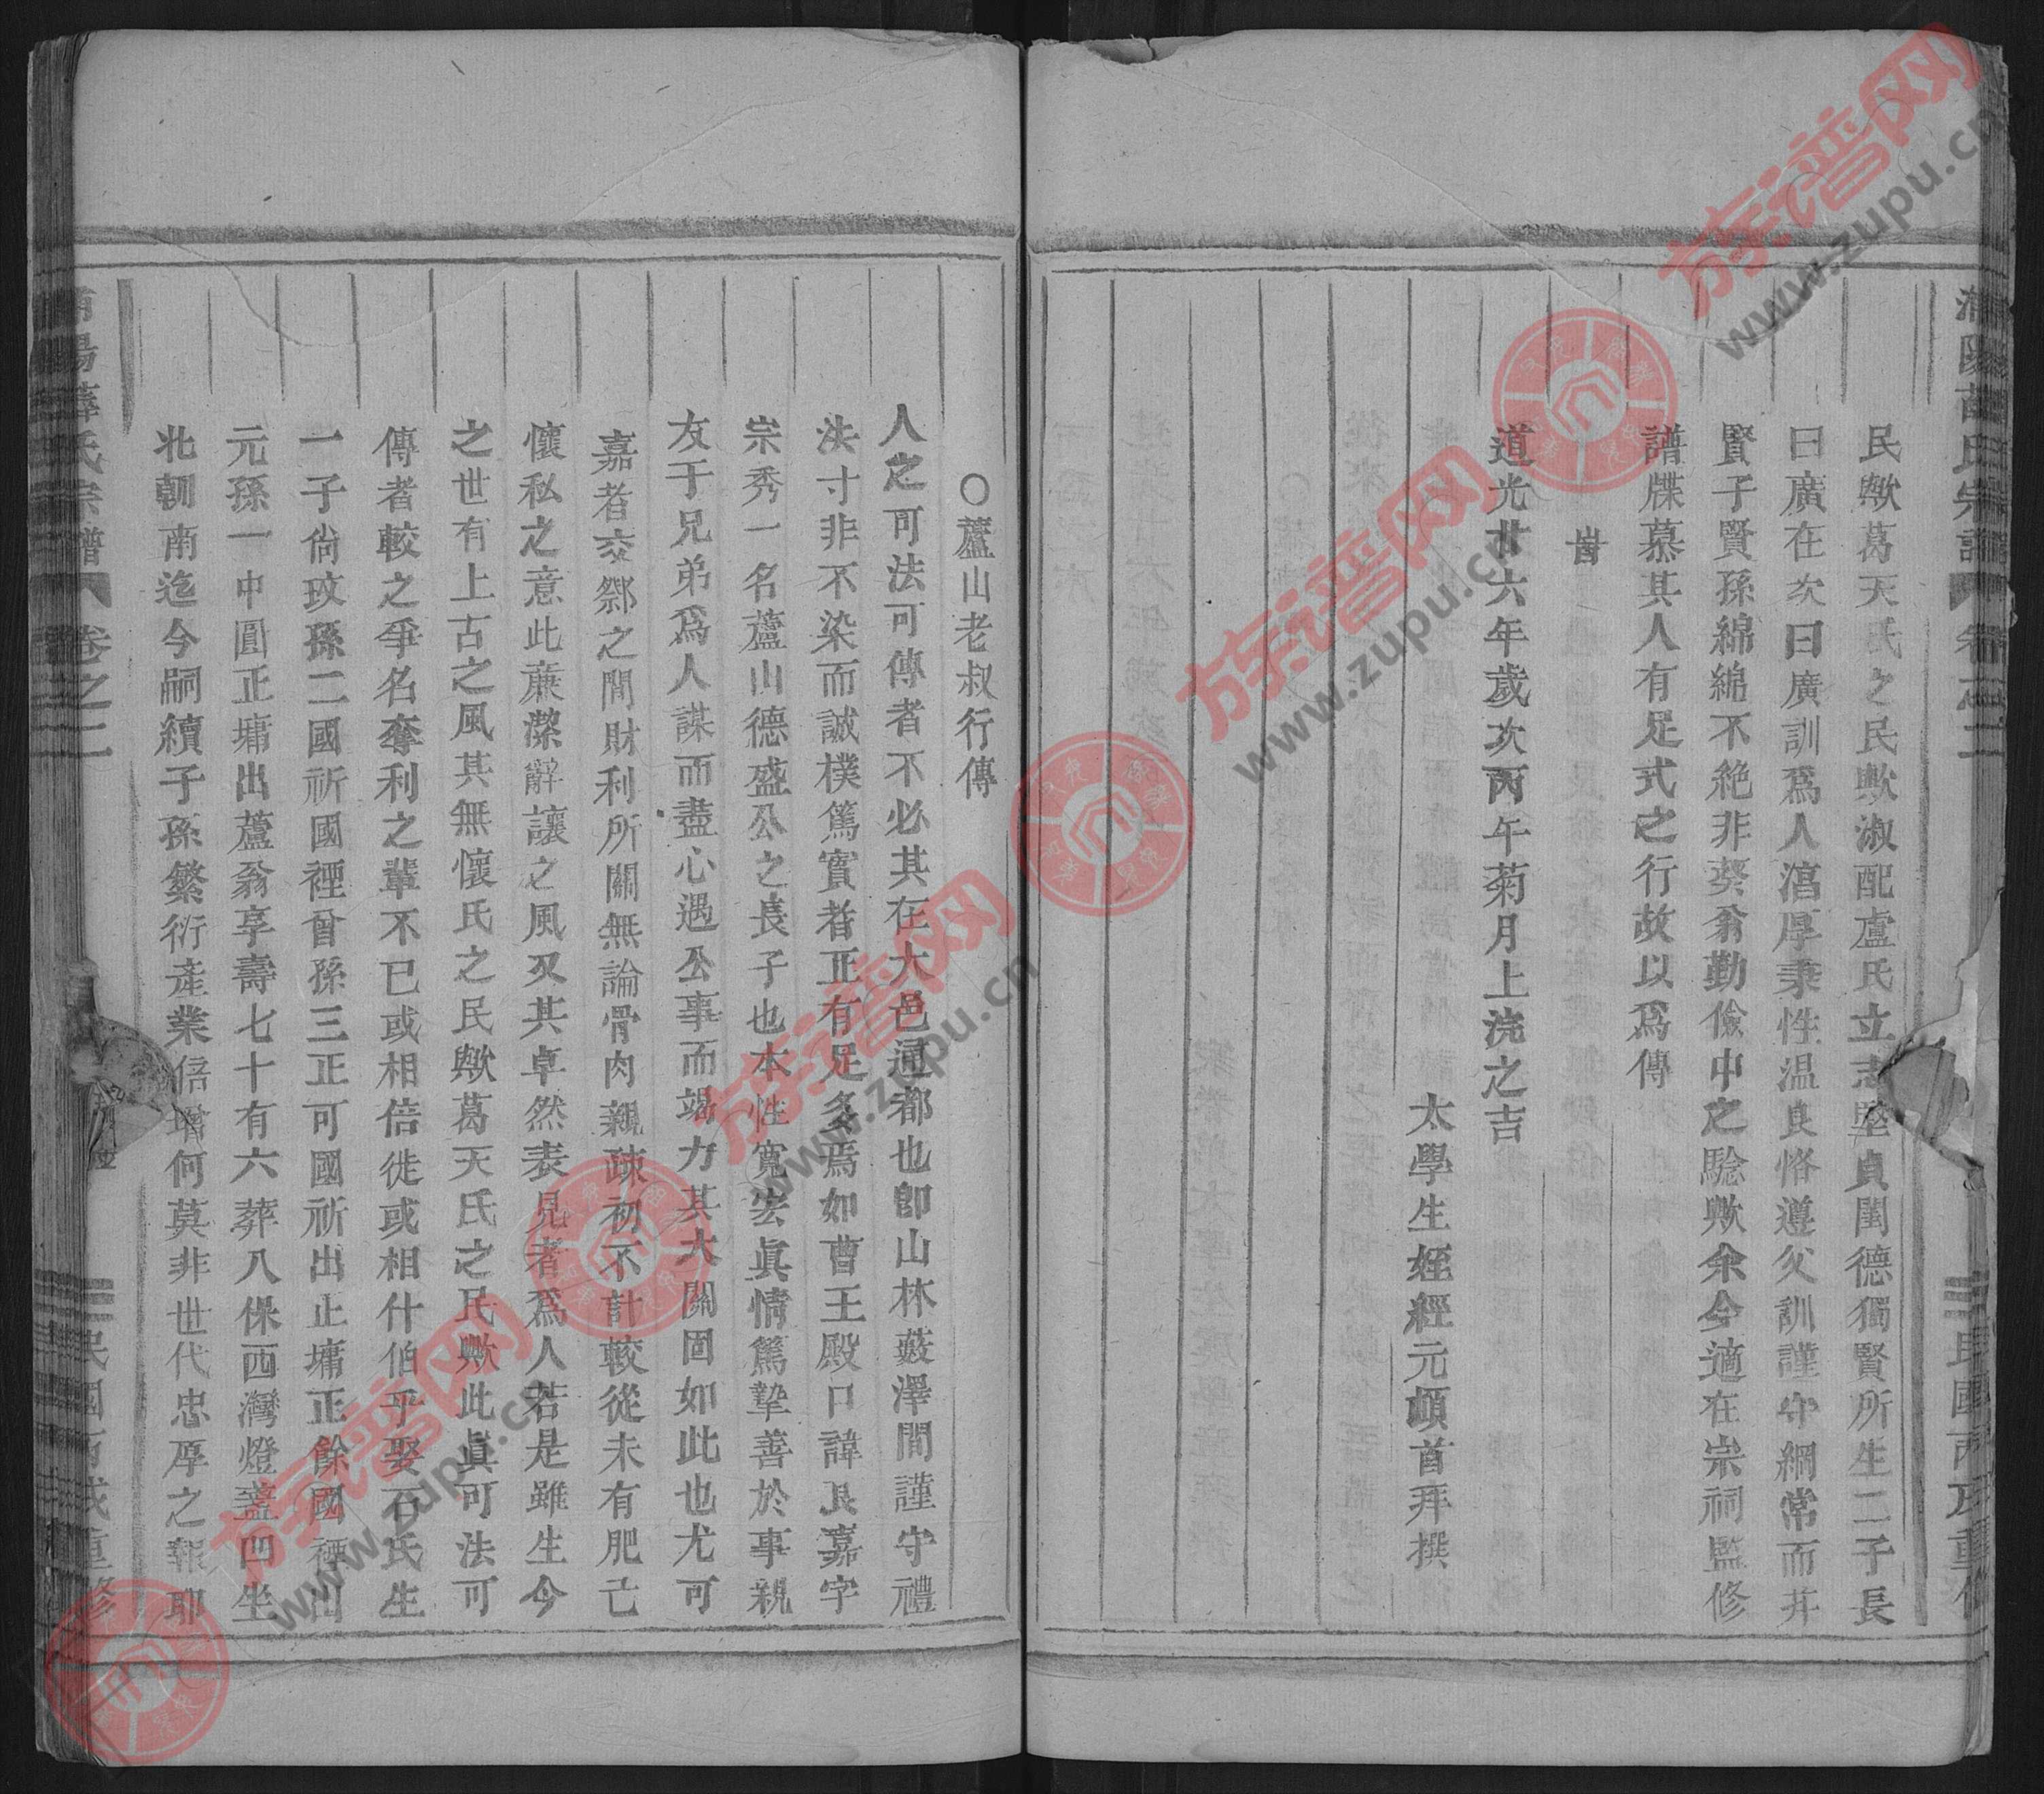 民歟葛天氏之民歟淑配盧氏立志堅貞閨德獨賢所生二子長
曰廣在次曰廣訓爲人渲厚秉性温良恪遵父訓謹守綱常而幷
賢子賢孫綿綿不絶非葵翁勤儉中之騐歟余今適在宗祠監修
譜牒慕其人有足式之行故以爲傳
旹
道光廿六年歲次丙午菊月上浣之吉
太學生姪經元頓首拜撰
○蘆山老叔行傳
人之可法可傳者不必其在大邑通都也卽山林薮澤間謹守禮
法寸非不染而誠樸篤實者正有足多焉如曹王殿口諱良嘉字
崇秀一名蘆山德盛公之長子也本性寬宏眞情篤摯善於事親
友于兄弟爲人謀而盡心遇公事而竭力其大關固如此也尤可
嘉者交鄰之間財利所關無論骨肉親疎初不計較從未有肥己
懷私之意此廉潔辭讓之風又其卓然表見者爲人若是雖生今
之世有上古之風其無懷氏之民歟葛天氏之民歟此眞可法可
傳者較之爭名奪利之輩不已或相倍徙或相什伯乎娶石氏生
一子尙玫孫二國祈國禋曾孫三正可國祈出正墉正餘國禋出
元孫一中圓正墉出蘆翁享壽七十有六葬八保西灣燈盞凹坐
北朝南迄今嗣續子孫繁衍產業倍增何莫非世代忠厚之報耶
薛氏宗譜 卷之二 民國丙戌重修
族谱网
www.zupu.cn
族谱网
www.zupu.cn
族谱网
www.zupu.cn
族谱网
www.zupu.cn